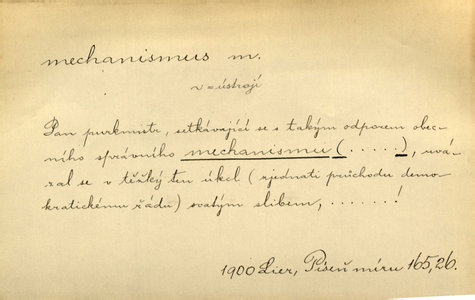 mechanismus m.
v = ústrojí
Pan purkmistr, setkávající se s takým odporem obec-
ního správního mechanismu (.....), uvá-
zal se v těžký ten úkol (zjednati průchodu demo-
kratickému řádu) svatým slibem, .......!
1900 Lier, Píseň míru 165,26.